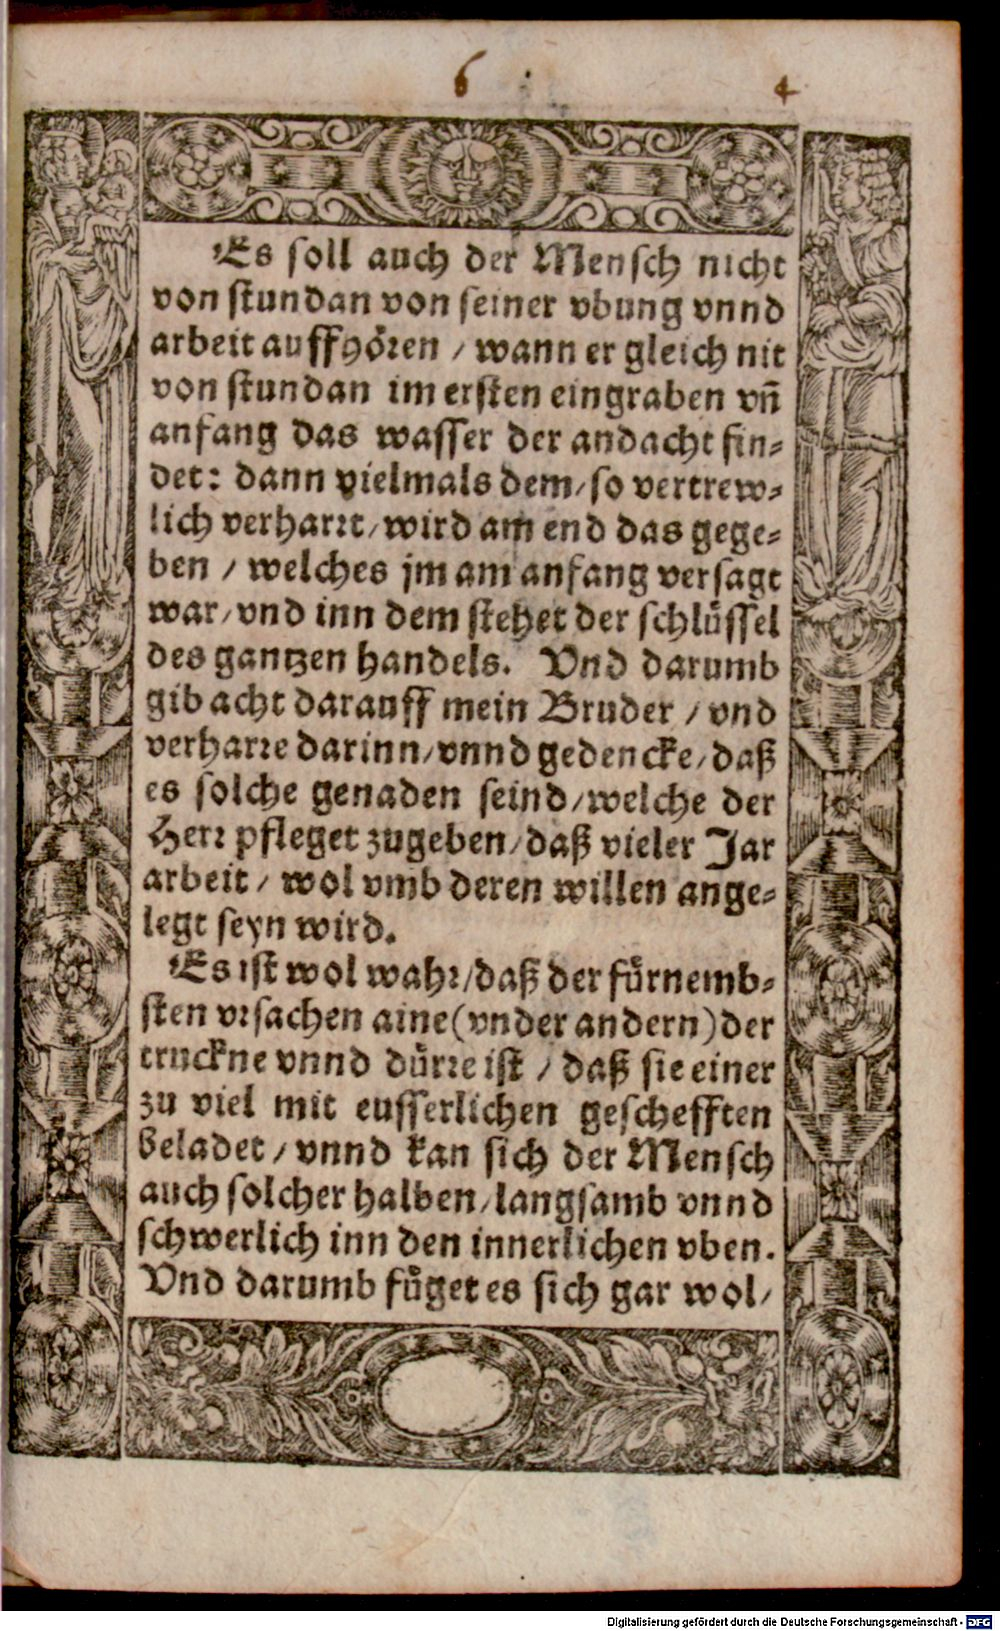 6 4
Es soll auch der Mensch nicht
von stundan von seiner vbung vnnd
arbeit auffhören / wann er gleich nit
von stundan im ersten eingraben vñ
anfang das wasser der andacht fin⸗
det: dann vielmals dem / so vertrew⸗
lich verharrt / wird am end das gege⸗
ben / welches jm am anfang versagt
war / vnd inn dem stehet der schlüssel
des gantzen handels. Vnd darumb
gib acht darauff mein Bruder / vnd
verharre darinn / vnnd gedencke / daß
es solche genaden seind / welche der
Herr pfleget zugeben / daß vieler Jar
arbeit / wol vmb deren willen ange⸗
legt seyn wird.
Es ist wol wahr / daß der fürnemb⸗
sten vrsachen aine (vnder andern) der
truckne vnnd dürre ist / daß sie einer
zu viel mit eusserlichen geschefften
beladet / vnnd kan sich der Mensch
auch solcher halben / langsamb vnnd
schwerlich inn den innerlichen vben.
Vnd darumb füget es sich gar wol /
Digitalisierung gefördert durch die Deutsche Forschungsgemeinschaft - DFG